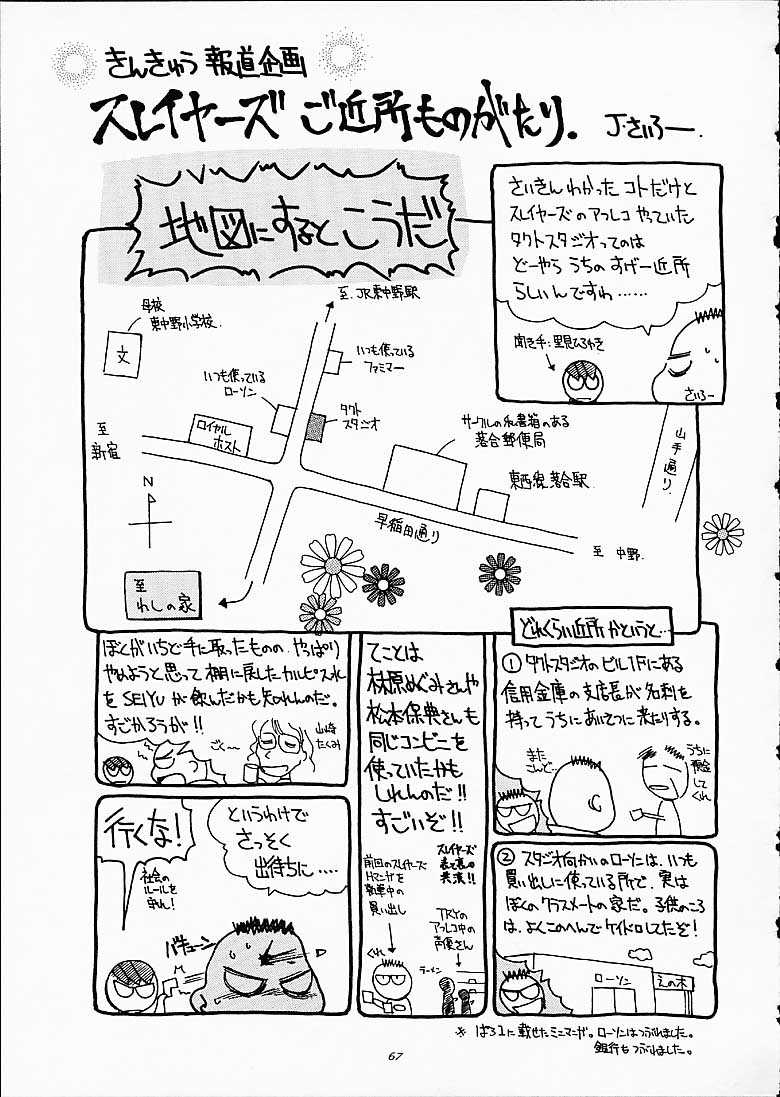 きんきゅう 報道企画
スレイヤーズ ご近所ものがたり。
J・さいろー
地図にするとこうだ
さいきんわかったコトだけと
スレイヤーズのアフレコやっていた
タクトスタジオってのは
どーやらうちのすげー近所
らしいんですわ……
聞き手:里見ひろゆき
さいろー
至.JR東中野駅
母校
東中野小学校.
文
いつも使っている
ファミマー
いつも使っている
ローソン
ロイヤル
ホスト
タクト
スタジオ
サークルの私書箱のある
落合郵便局
東西線落合駅
山手通り
至
新宿
N
早稲田通り
至 中野.
至
わしの家
どれくらい近所かというと…
① タクトスタジオのビル1Fにある
信用金庫の支店長が名刺を
持ってうちにあいさつに来たりする。
また
さんど…
うちに
預金
して
くれ
② スタジオ向かいのローソンは、いつも
買い出しに使っている所で、実は
ぼくのクラスメートの家だ。子供のころ
は、よくこのへんでケイドロしてたぞ!
ローソン
えの木
てことは
林原めぐみさんや
松本保典さんも
同じコンビニを
使っていたかも
しれんのだ!!
すごいぞ!!
スレイヤーズ
表と裏の
共演!!
前回のスレイヤーズ
Hマンガを
執筆中の
買い出し
TRYの
アフレコ中の
声優さん
くれ
ラーメン
ぼくがいちど手に取ったものの、やっぱり
やめようと思って棚に戻したカルピスあれ
をSEIYUが飲んだかも知れんのだ。
すごかろうが!!
ごく〜
山崎
たくみ
というわけで
さっそく
出待ちに….
行くな!
社会の
ルールを
守れ!
バキューン
※ ぱろ1に載せたミニマンガ。ローソンはつぶれました。
銀行もつぶれました。
67